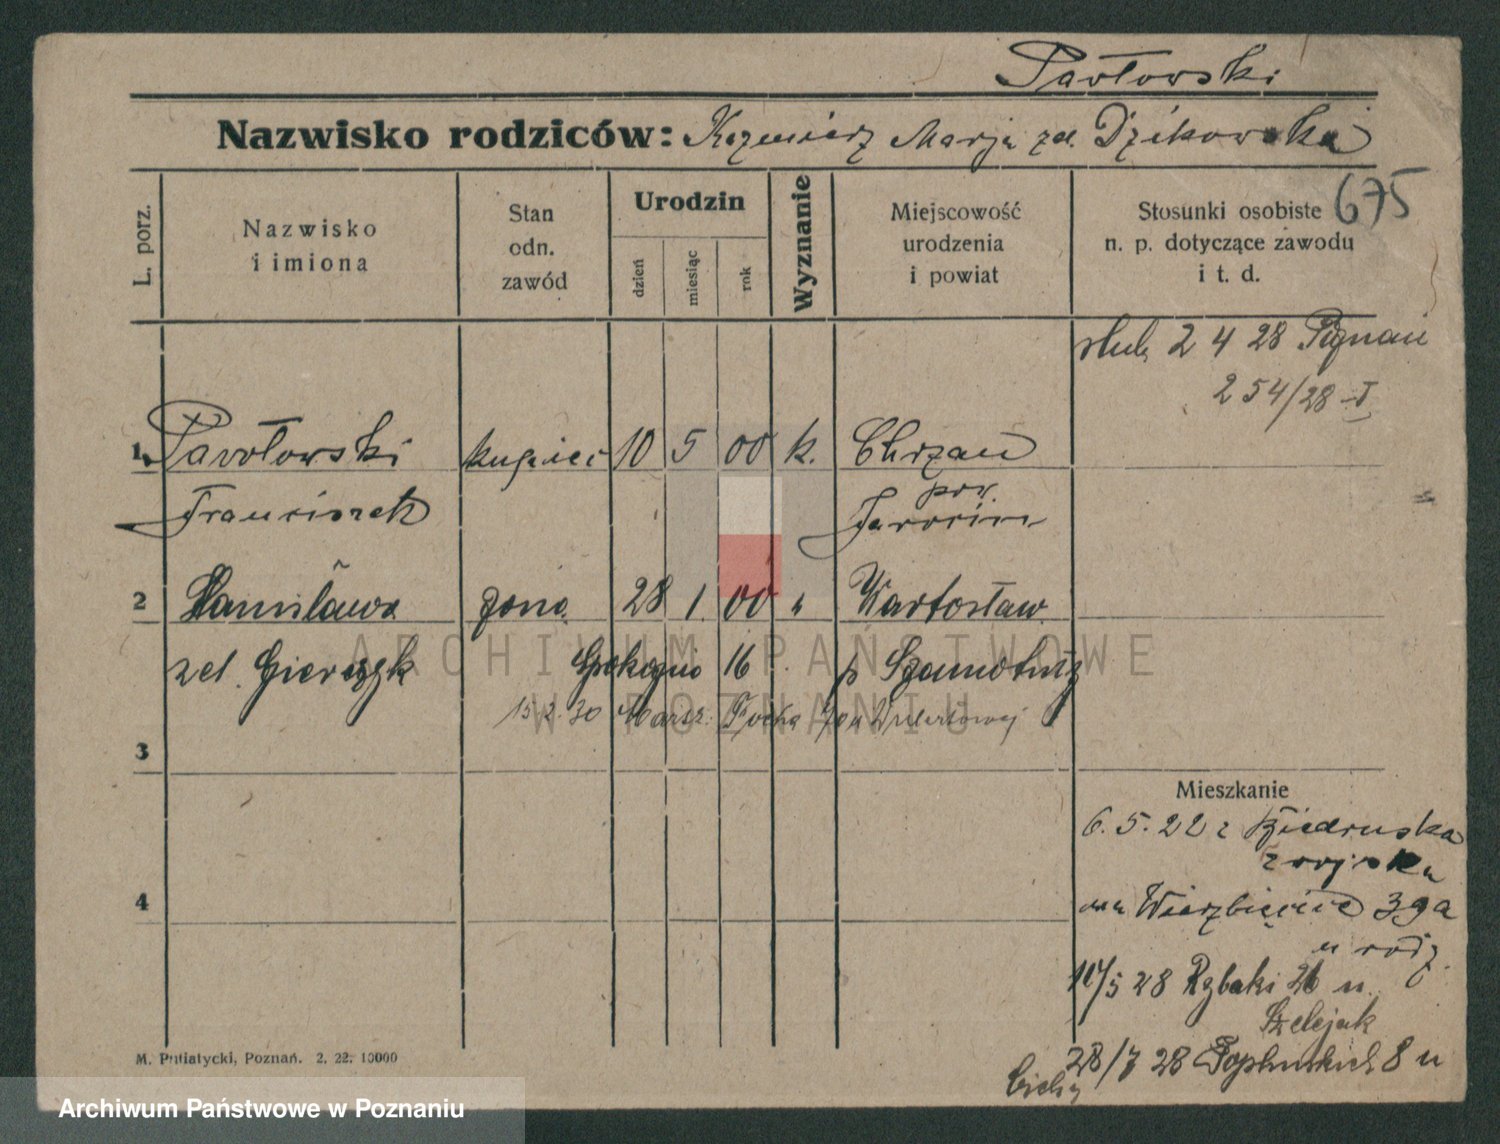 Pawłowski
Nazwisko rodziców: Kazmierz Marja zd. Dzikowska
L. porz.
Nazwisko
i imiona
Stan
odn.
zawód
Urodzin
dzień
miesiąc
rok
Wyznanie
Miejscowość
urodzenia
i powiat
Stosunki osobiste
n. p. dotyczące zawodu
i t. d.
675
ślub 2 4 28 Poznań
254/28 I
1. Pawłowski kupiec 10 5 00 k. Chrzan
Franciszek pow. Jarocin
2 Stanisława żona 28 1 00 " Warłosław
zd. Spokojna 16 p Szamotuły
15 2. 30 Marsz. Focha
3
Mieszkanie
6. 5. 22 z Biedruska
z wojska
na Wierzbięcice 39a
u rodz.
28 Rybaki u
Szelejak
28/7 28 8 u
Cichy
4
M. Putiatycki, Poznań. 2. 22. 10000
ARCHIWUM PAŃSTWOWE
W POZNANIU
Archiwum Państwowe w Poznaniu